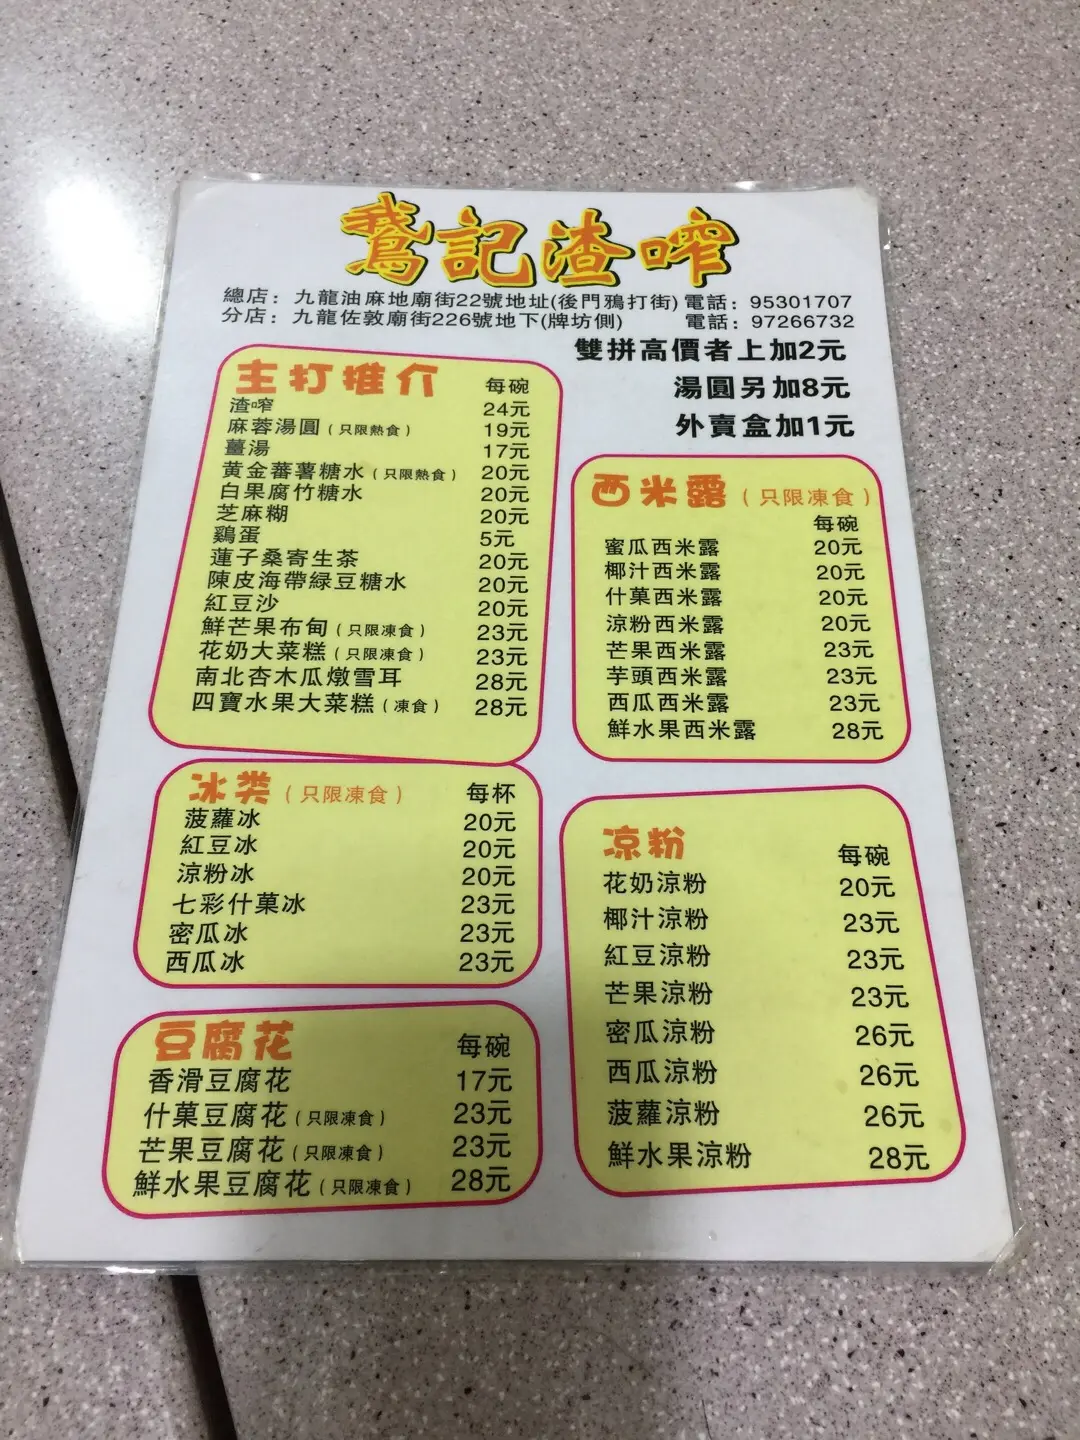 鵝記渣咋
總店：九龍油麻地廟街22號地址(後門鴉打街) 電話：95301707
分店：九龍佐敦廟街226號地下(牌坊側) 電話：97266732
雙拼高價者上加2元
湯圓另加8元
外賣盒加1元
主打推介 每碗
渣咋 24元
麻蓉湯圓（只限熱食） 19元
薑湯 17元
黃金蕃薯糖水（只限熱食） 20元
白果腐竹糖水 20元
芝麻糊 20元
鷄蛋 5元
蓮子桑寄生茶 20元
陳皮海帶緑豆糖水 20元
紅豆沙 20元
鮮芒果布甸（只限凍食） 23元
花奶大菜糕（只限凍食） 23元
南北杏木瓜燉雪耳 28元
四寶水果大菜糕（凍食） 28元
西米露（只限凍食）
每碗
蜜瓜西米露 20元
椰汁西米露 20元
什菓西米露 20元
涼粉西米露 20元
芒果西米露 23元
芋頭西米露 23元
西瓜西米露 23元
鮮水果西米露 28元
冰类（只限凍食） 每杯
菠蘿冰 20元
紅豆冰 20元
涼粉冰 20元
七彩什菓冰 23元
密瓜冰 23元
西瓜冰 23元
凉粉 每碗
花奶涼粉 20元
椰汁涼粉 23元
紅豆涼粉 23元
芒果涼粉 23元
密瓜涼粉 26元
西瓜涼粉 26元
菠蘿涼粉 26元
鮮水果涼粉 28元
豆腐花 每碗
香滑豆腐花 17元
什菓豆腐花（只限凍食） 23元
芒果豆腐花（只限凍食） 23元
鮮水果豆腐花（只限凍食） 28元